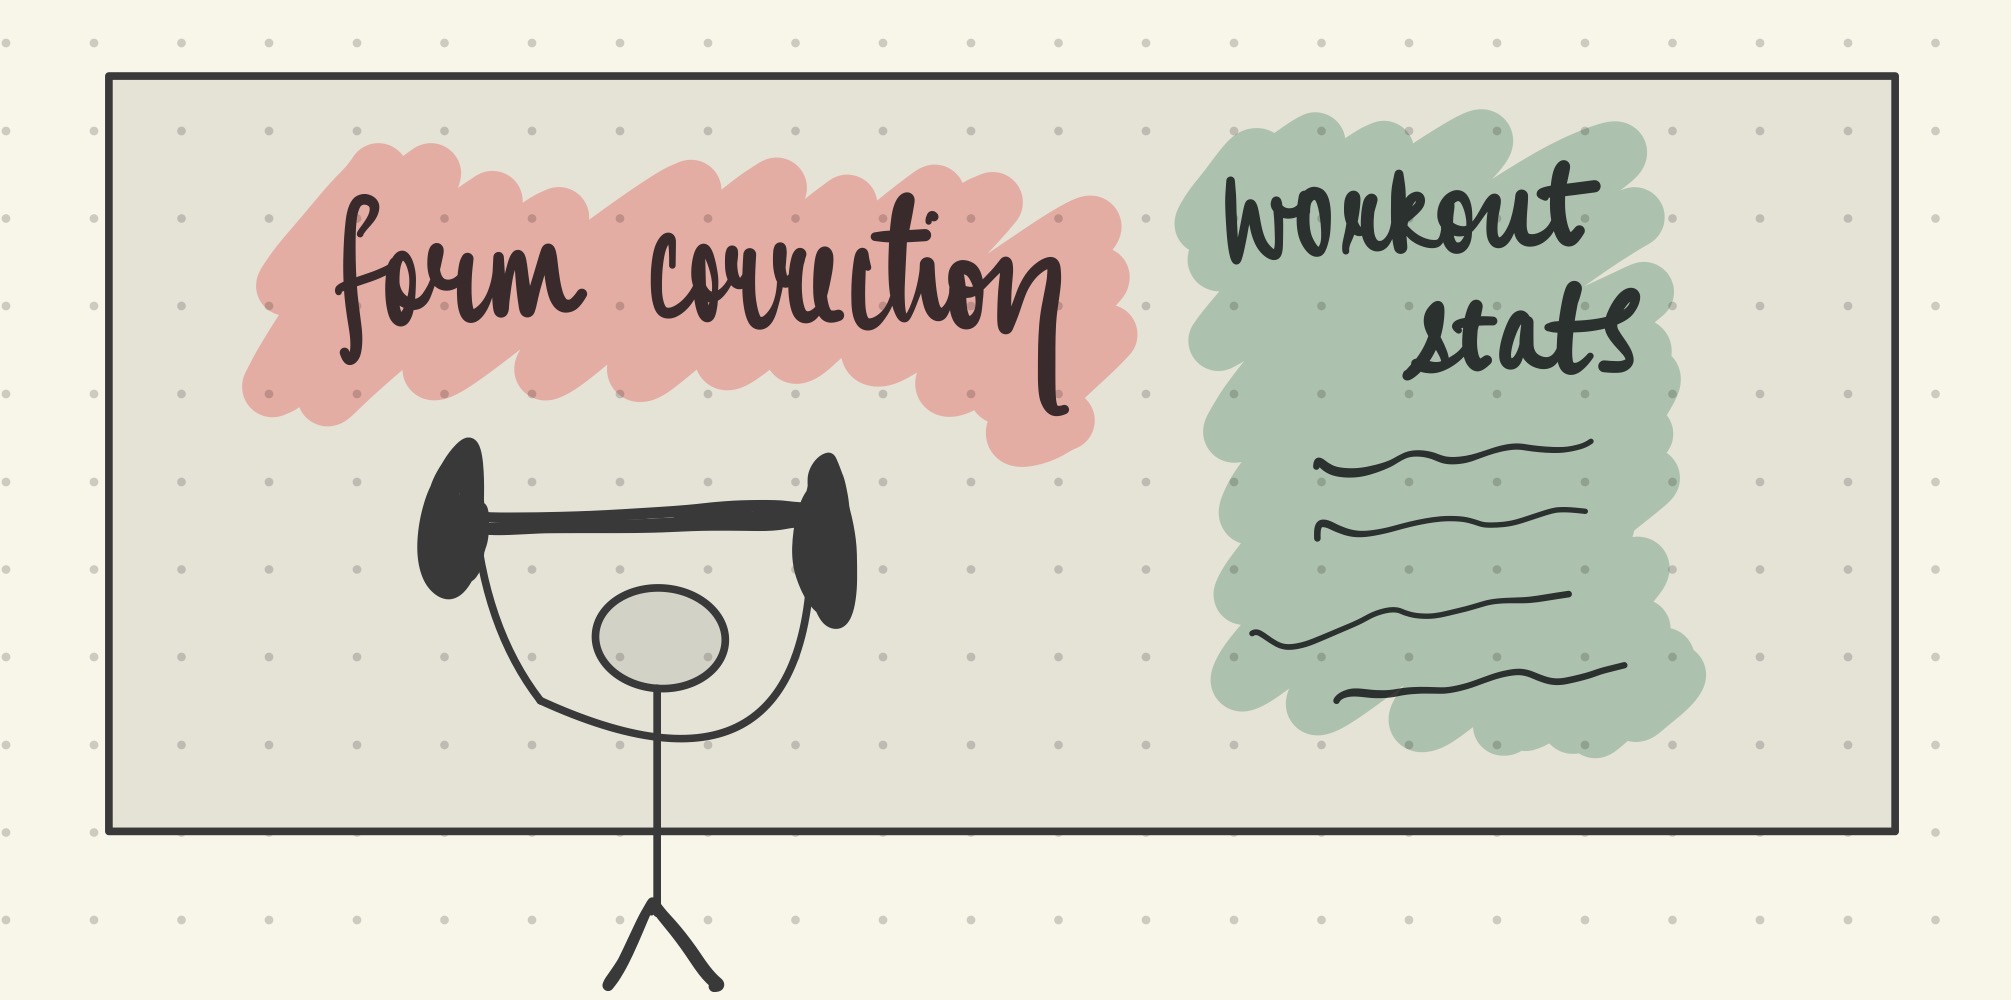 form correction
workout
stats